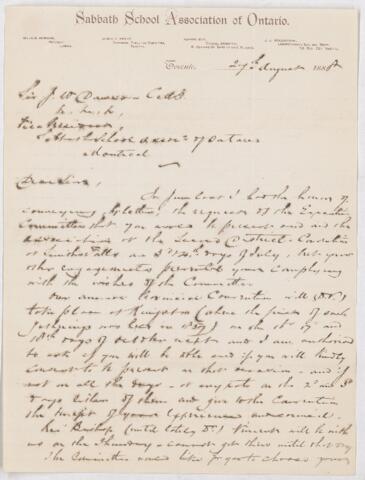 Sabbath School Association of Ontario.
Toronto, 27th August 188
Sir J. W. Dawson
Montreal
Dear Sir,
In June last I had the honor of
conveying by letter, the request of the Executive
Committee that you would be present and aid the
Association at the Second District Convention
at Smiths Falls on 3d & 4th days of July, but your
other engagements prevented your complying
with the wishes of the Committee.
Our Annual Provincial Convention will (D.V.)
take place at Kingston (where the first of such
gatherings was held in 1857) on the 16th 17 and
18th days of October next and I am authorized
to ask if you will be able and if you will kindly
consent to be present on that occasion - and if
not on all the days - at any rate on the 2d and 3d
days either of them and give to the Convention
the benefit of your experience and counsel.
Rev Bishop (until lately Dr.) Vincent will be with
us on the Thursday - cannot get there until that day
The Committee would like for you to choose your